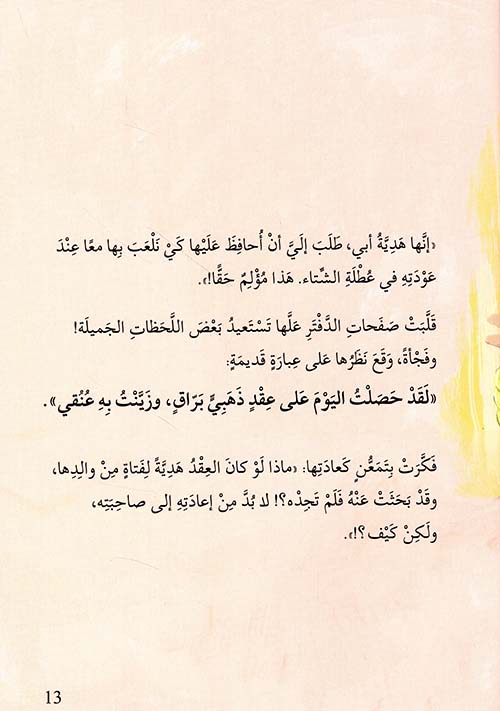 «إنَّها هَدِيَّةُ أبي، طَلَبَ إلَيَّ أنْ أُحافِظَ عَلَيْها كَيْ نَلْعَبَ بِها معًا عِنْدَ
عَوْدَتِهِ في عُطْلَةِ الشِّتاء. هَذا مُؤْلِمٌ حَقًّا!».
قَلَّبَتْ صَفَحاتِ الدَّفْتَرِ عَلَّها تَسْتَعيدُ بَعْضَ اللَّحَظاتِ الجَميلَة!
وفَجْأةً، وَقَعَ نَظَرُها عَلى عِبارَةٍ قَديمَةٍ:
«لَقَدْ حَصَلْتُ اليَوْمَ عَلى عِقْدٍ ذَهَبِيٍّ بَرّاقٍ، وزَيَّنْتُ بِهِ عُنُقي».
فَكَّرَتْ بِتَمَعُّنٍ كَعادَتِها: «ماذا لَوْ كانَ العِقْدُ هَدِيَّةً لِفَتاةٍ مِنْ والِدِها،
وقَدْ بَحَثَتْ عَنْهُ فَلَمْ تَجِدْه؟! لا بُدَّ مِنْ إعادَتِهِ إلى صاحِبَتِه،
ولَكِنْ كَيْف؟!».
13